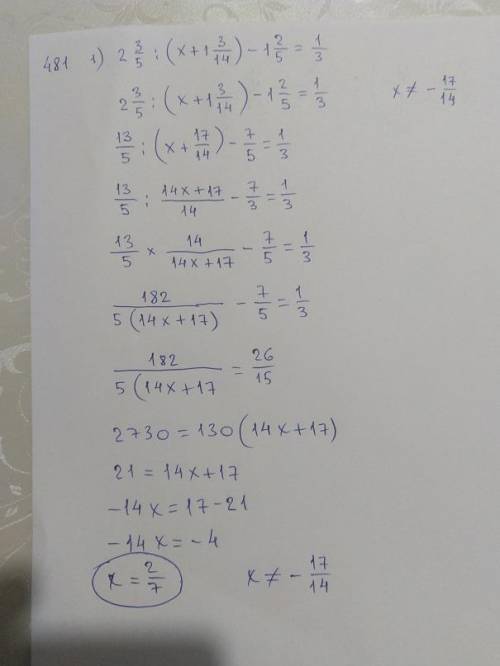 481 1) 2 3/5 : (x+1 3/14) - 1 2/5 = 1/3
2 3/5 : (x+1 3/14) - 1 2/5 = 1/3 x ≠ - 17/14
13/5 : (x + 17/14) - 7/5 = 1/3
13/5 : 14x+17/14 - 7/3 = 1/3
13/5 × 14/14x+17 - 7/5 = 1/3
182/5(14x+17) - 7/5 = 1/3
182/5(14x+17 = 26/15
2730 = 130(14x+17)
21 = 14x+17
-14x = 17-21
-14x = -4
x = 2/7 x ≠ - 17/14